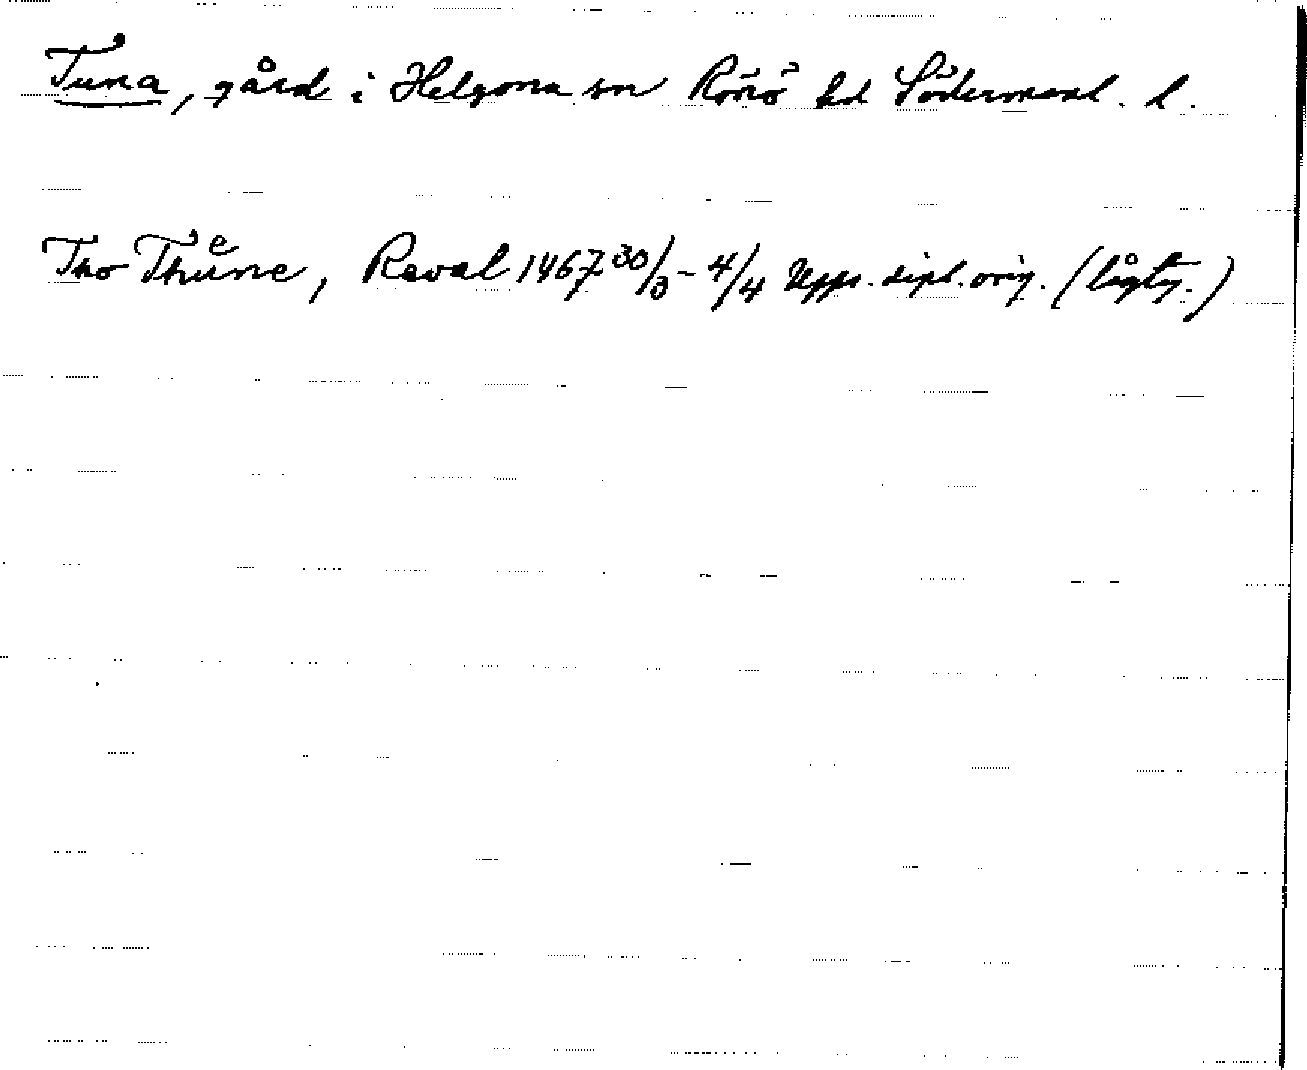 Tuna, gård i Helgona sn Rönö hd Södermanl. l.
Tho Thuͤne, Reval 1467 30/3 – 4/4 Upps. dipl. orig. (lågty.)